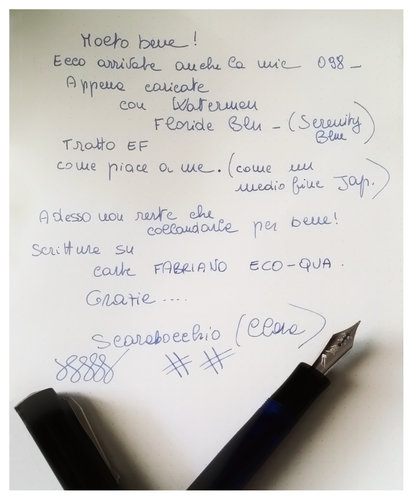 Molto bene!
Ecco arrivate anche la mie 098_
Appena caricate
con Waterman
Floride Blu - (Serenity
Blue)
Tratto EF
come piace a me. (come un
medio fine Jap.)
Adesso non resta che
collaudarle per bene!
Scrittura su
carta FABRIANO ECO-QUA.
Grazie....
Scarabocchio (Clara)